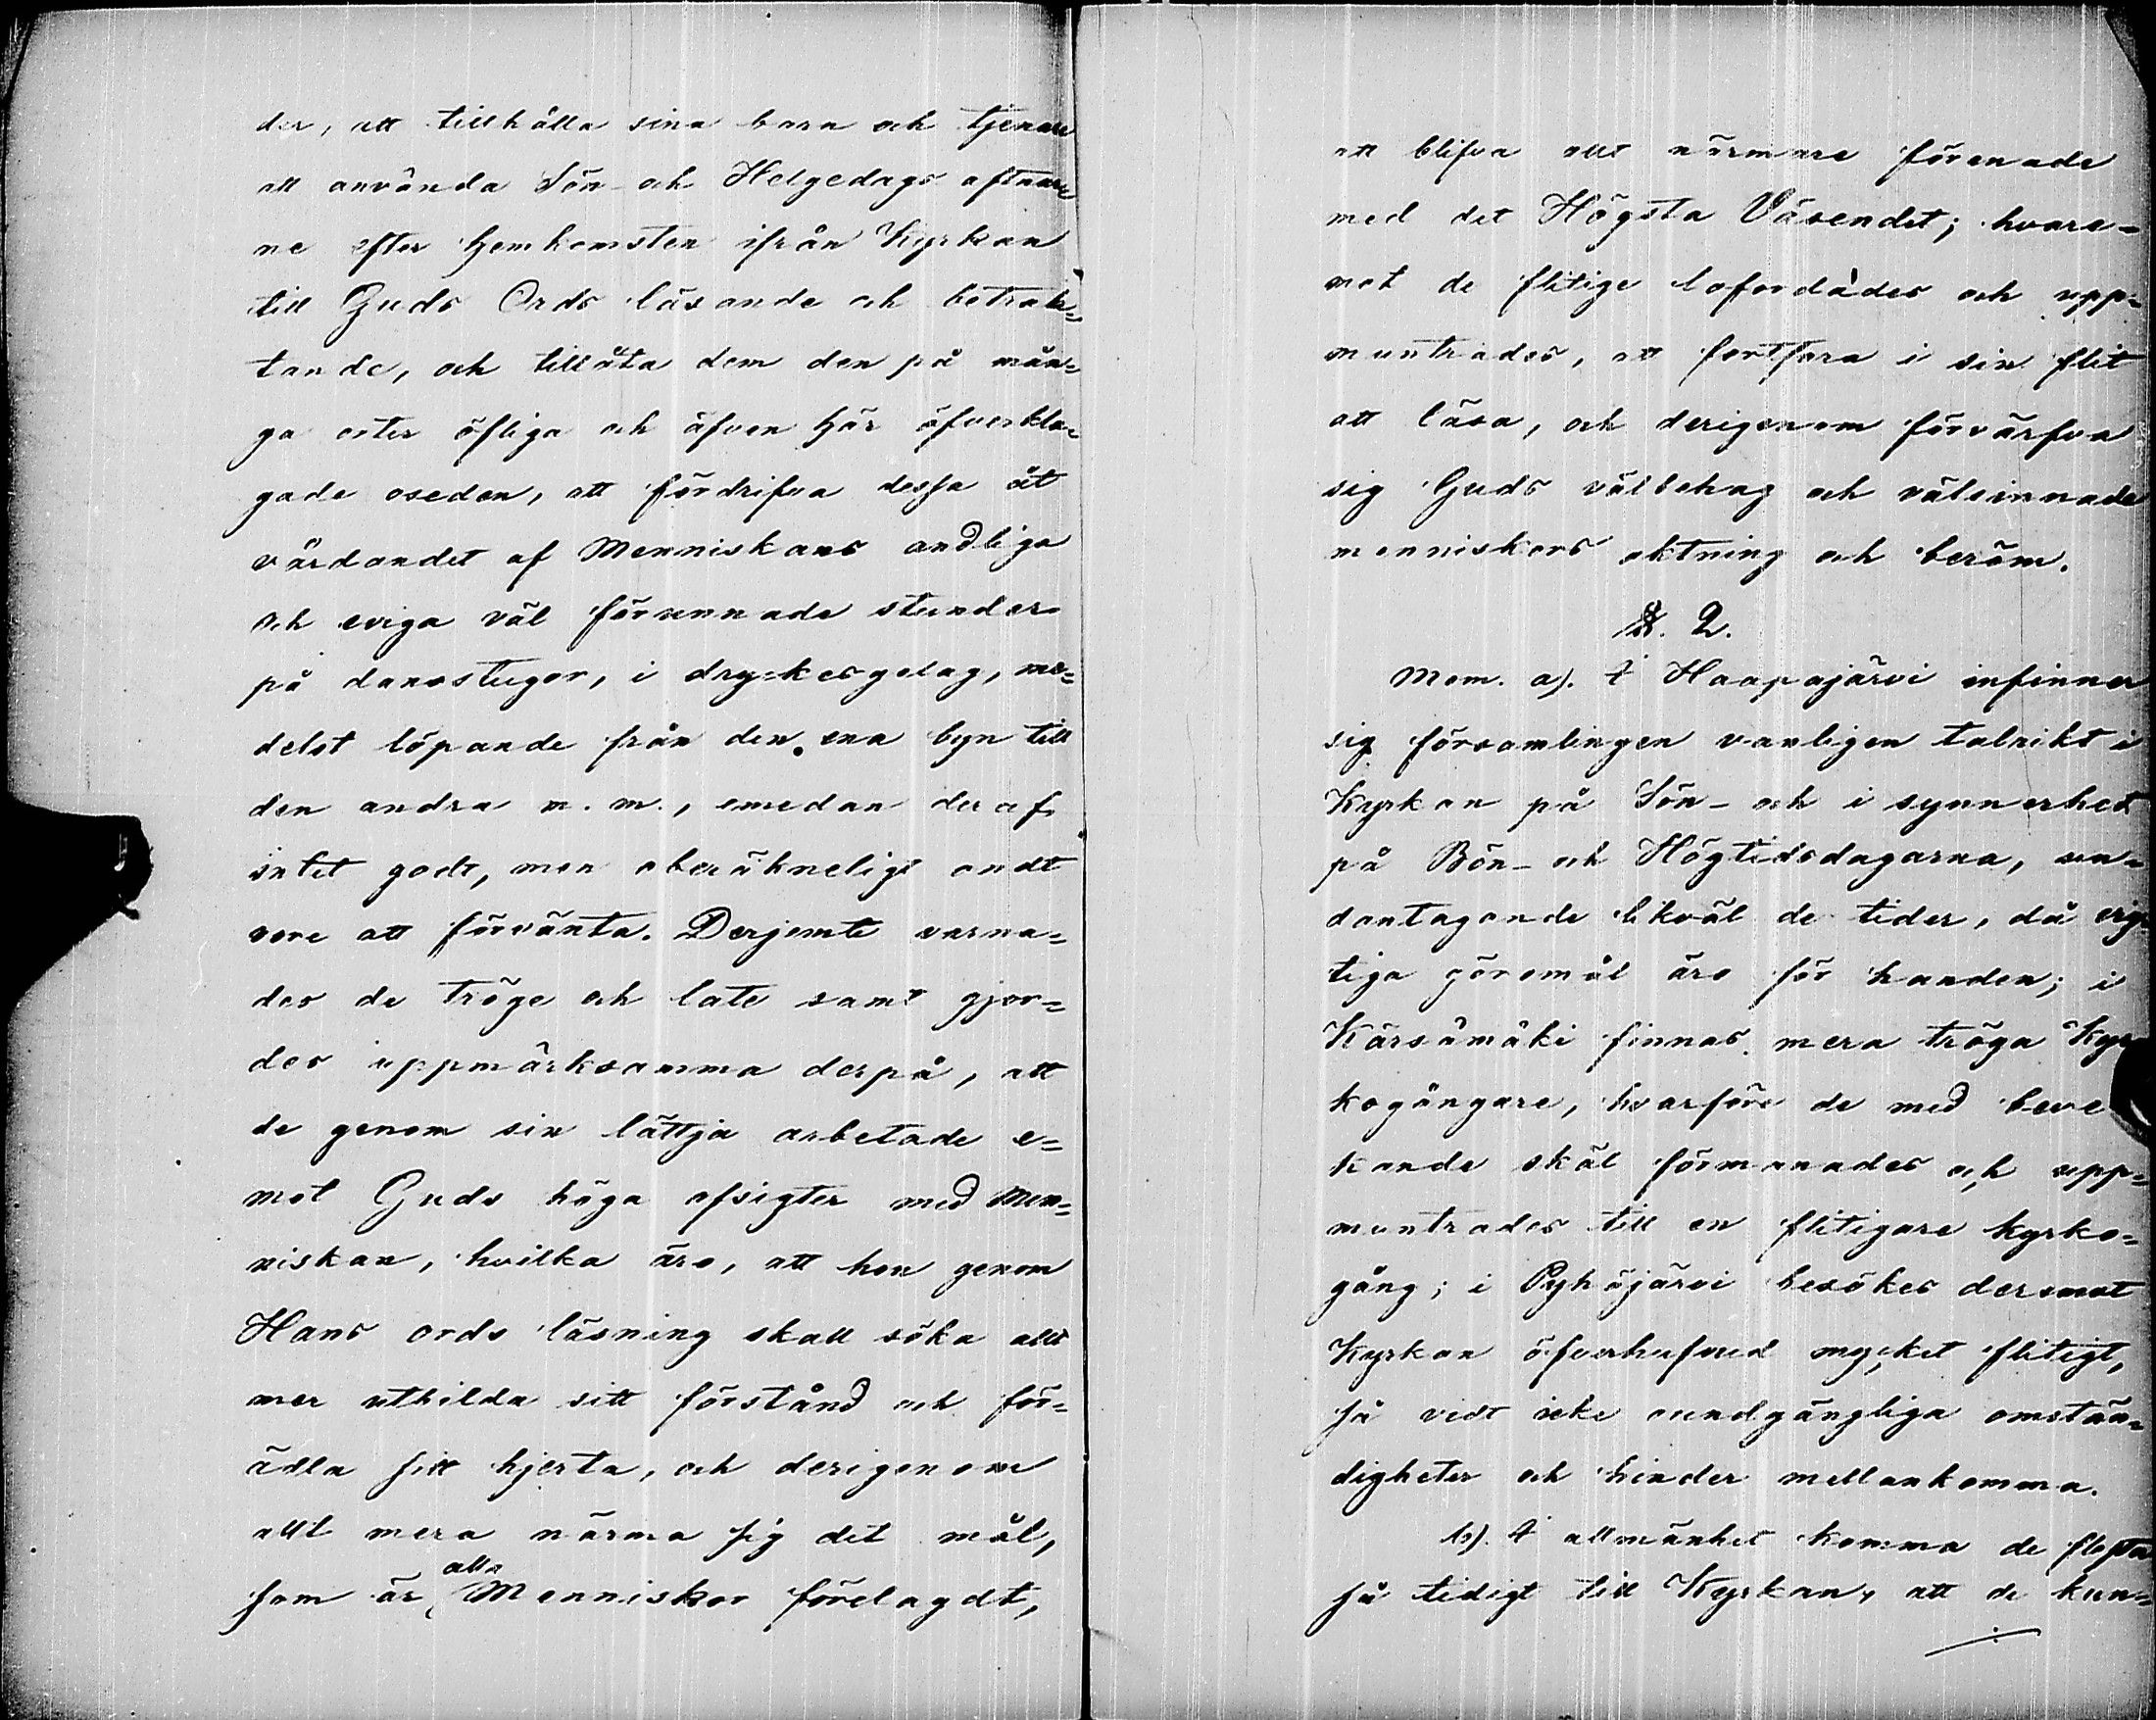 der, att tillhålla sina barn och tjenare
att använda Sön- och Helgedags aftnar-
ne efter hemkomsten ifrån Kyrkan
till Guds Ords läsande och betrak=
tande, och tillåta dem den på mån=
ga orter öfliga och äfven här öfverkla=
gade oseden, att fördrifva dessa åt
vårdandet af Menniskans andliga
och eviga väl förunnade stunder
på dansstugor, i dryckesgelag, me=
delst löpande från den ena byn till
den andra m. m., emedan deraf
intet godt, men oberäkneligt ondt
vore att förvänta. Derjemte varna=
des de tröge och late samt gjor=
des uppmärksamma derpå, att
de genom sin lättja arbetade e=
mot Guds höga afsigter med Men=
niskan, hvilka äro, att hon genom
Hans ords läsning skall söka allt
mer utbilda sitt förstånd och för=
ädla sitt hjerta, och derigenom
allt mera närma sig det mål,
som är alla Menniskor förelagdt,
att blifva allt närmare förenade
med det Högsta Väsendet; hvare=
mot de flitige lofordades och upp=
muntrades, att fortfara i sin flit
att läsa, och derigenom förvärfva
sig Guds välbehag och välsinnade
menniskors aktning och beröm.
§. 2.
Mom. a). I Haapajärvi infinner
sig församlingen vanligen talrikt i
Kyrkan på Sön- och i synnerhet
på Bön- och Högtidsdagarna, un=
dantagande likväl de tider, då
tiga göromål äro för handen; i
Kärsämäki finnas mera tröga Kyr
kogångare, hvarföre de med beve
kande skäl förmanades och upp=
muntrades till en flitigare kyrko=
gång; i Pyhäjärvi besökes deremot
Kyrkan öfverhufvud mycket flitigt,
så vidt icke oundgängliga omstän=
digheter och hinder mellankomma.
b). I allmänhet komma de flesta
så tidigt till Kyrkan, att de kun=